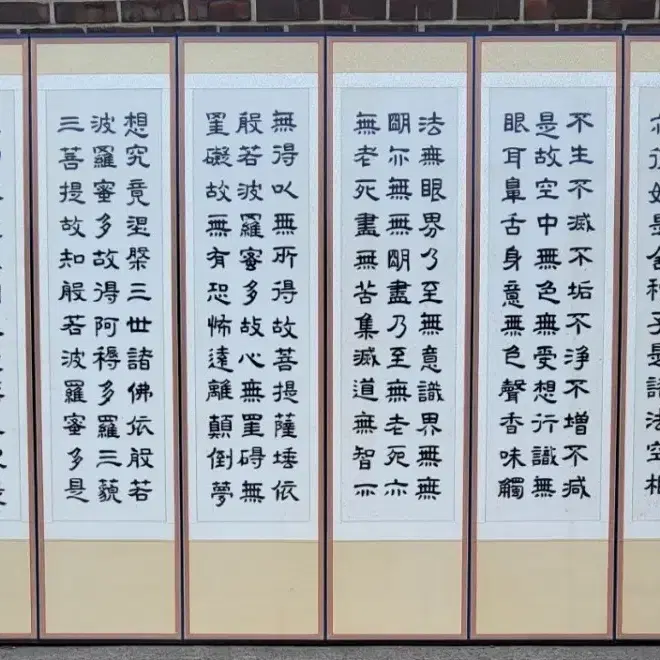 亦復如是舍利子是諸法空相
不生不滅不垢不淨不增不減
是故空中無色無受想行識無
眼耳鼻舌身意無色聲香味觸
法無眼界乃至無意識界無無
明亦無無明盡乃至無老死亦
無老死盡無苦集滅道無智亦
無得以無所得故菩提薩埵依
般若波羅蜜多故心無罣碍無
罣礙故無有恐怖遠離顛倒夢
想究竟涅槃三世諸佛依般若
波羅蜜多故得阿耨多羅三藐
三菩提故知般若波羅蜜多是